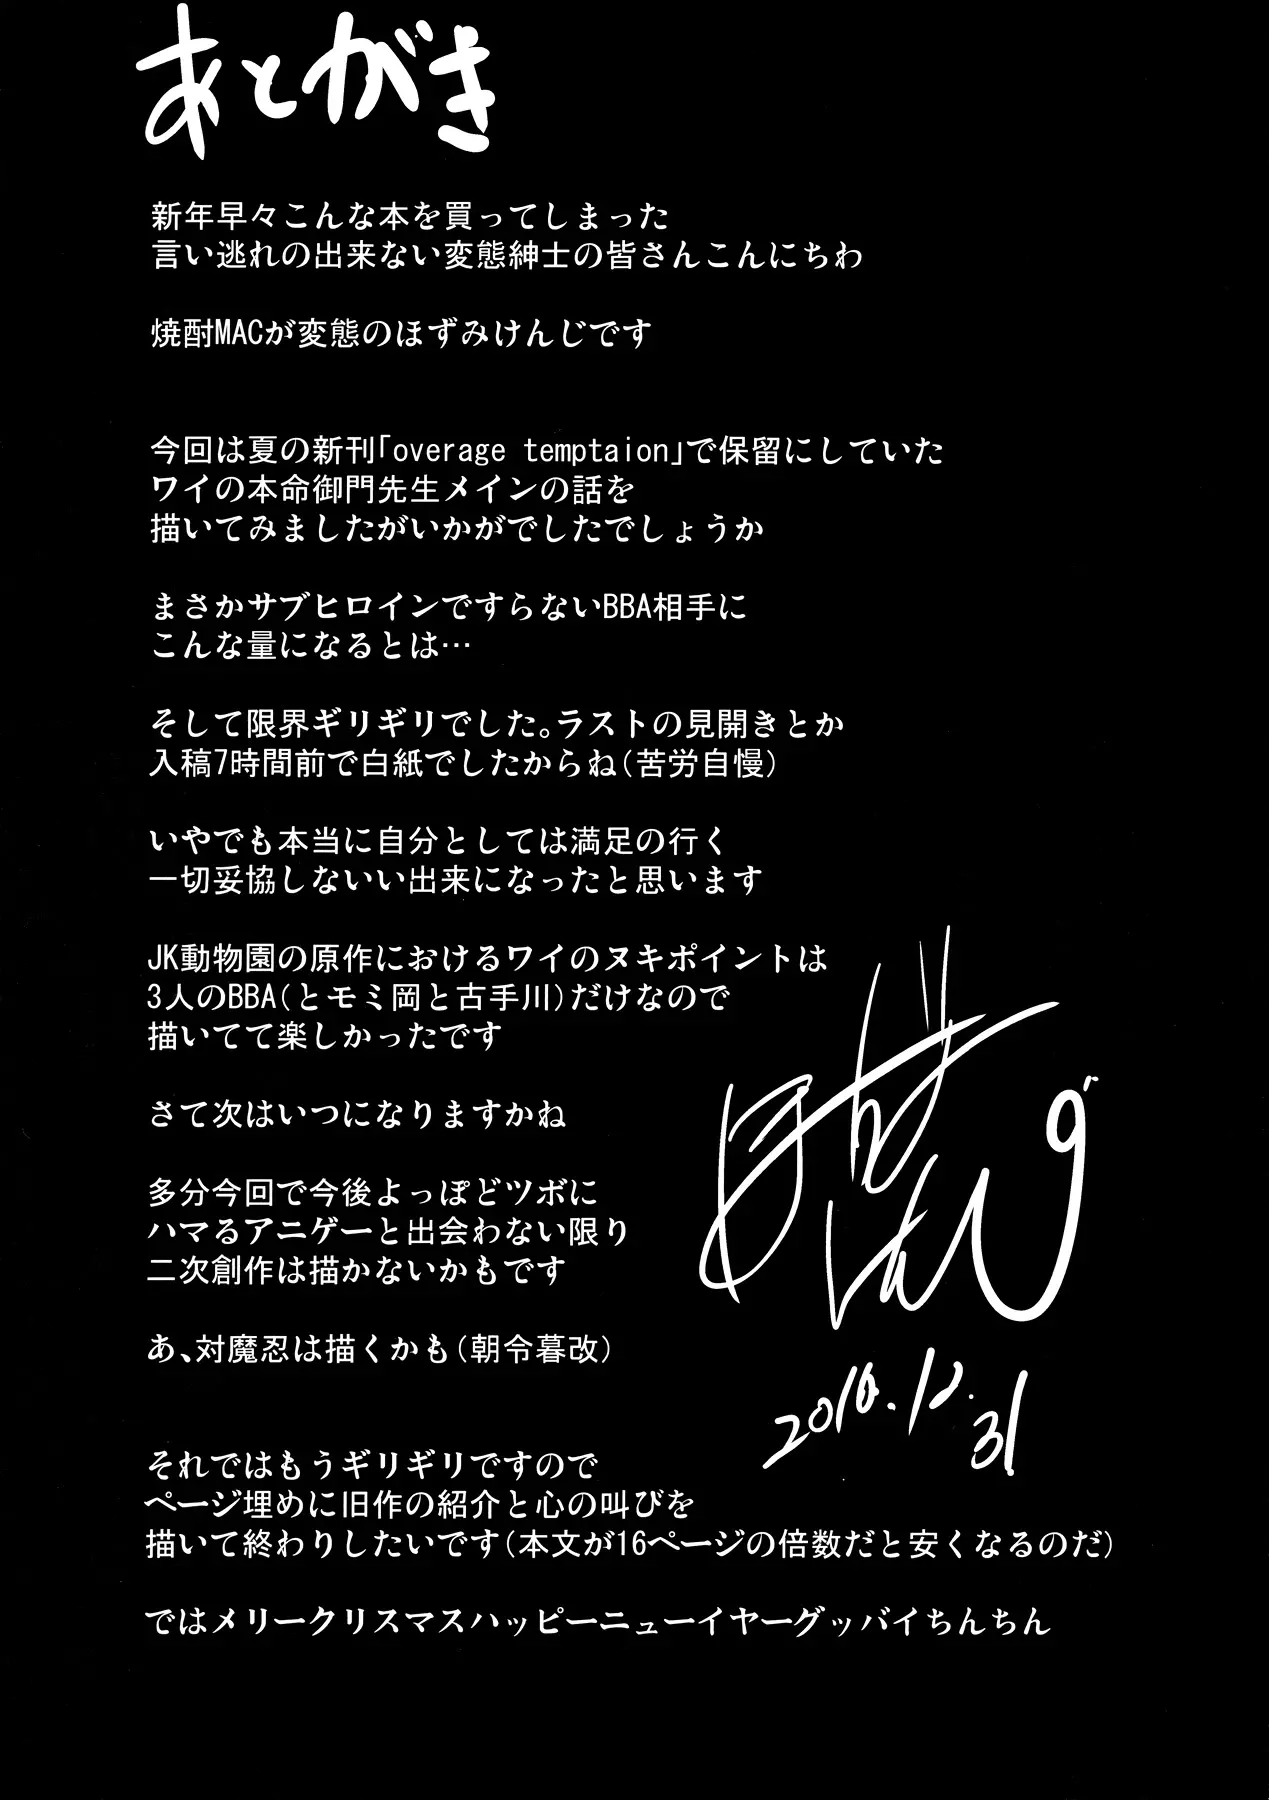 あとがき
新年早々こんな本を買ってしまった
言い逃れの出来ない変態紳士の皆さんこんにちわ
焼酎MACが変態のほずみけんじです
今回は夏の新刊｢overage temptaion｣で保留にしていた
ワイの本命御門先生メインの話を
描いてみましたがいかがでしたでしょうか
まさかサブヒロインですらないBBA相手に
こんな量になるとは…
そして限界ギリギリでした。ラストの見開きとか
入稿7時間前で白紙でしたからね(苦労自慢)
いやでも本当に自分としては満足の行く
一切妥協しないいい出来になったと思います
JK動物園の原作におけるワイのヌキポイントは
3人のBBA(とモミ岡と古手川)だけなので
描いてて楽しかったです
さて次はいつになりますかね
多分今回で今後よっぽどツボに
ハマるアニゲーと出会わない限り
二次創作は描かないかもです
あ、対魔忍は描くかも(朝令暮改)
2016.12.31
それではもうギリギリですので
ページ埋めに旧作の紹介と心の叫びを
描いて終わりしたいです(本文が16ページの倍数だと安くなるのだ)
ではメリークリスマスハッピーニューイヤーグッバイちんちん